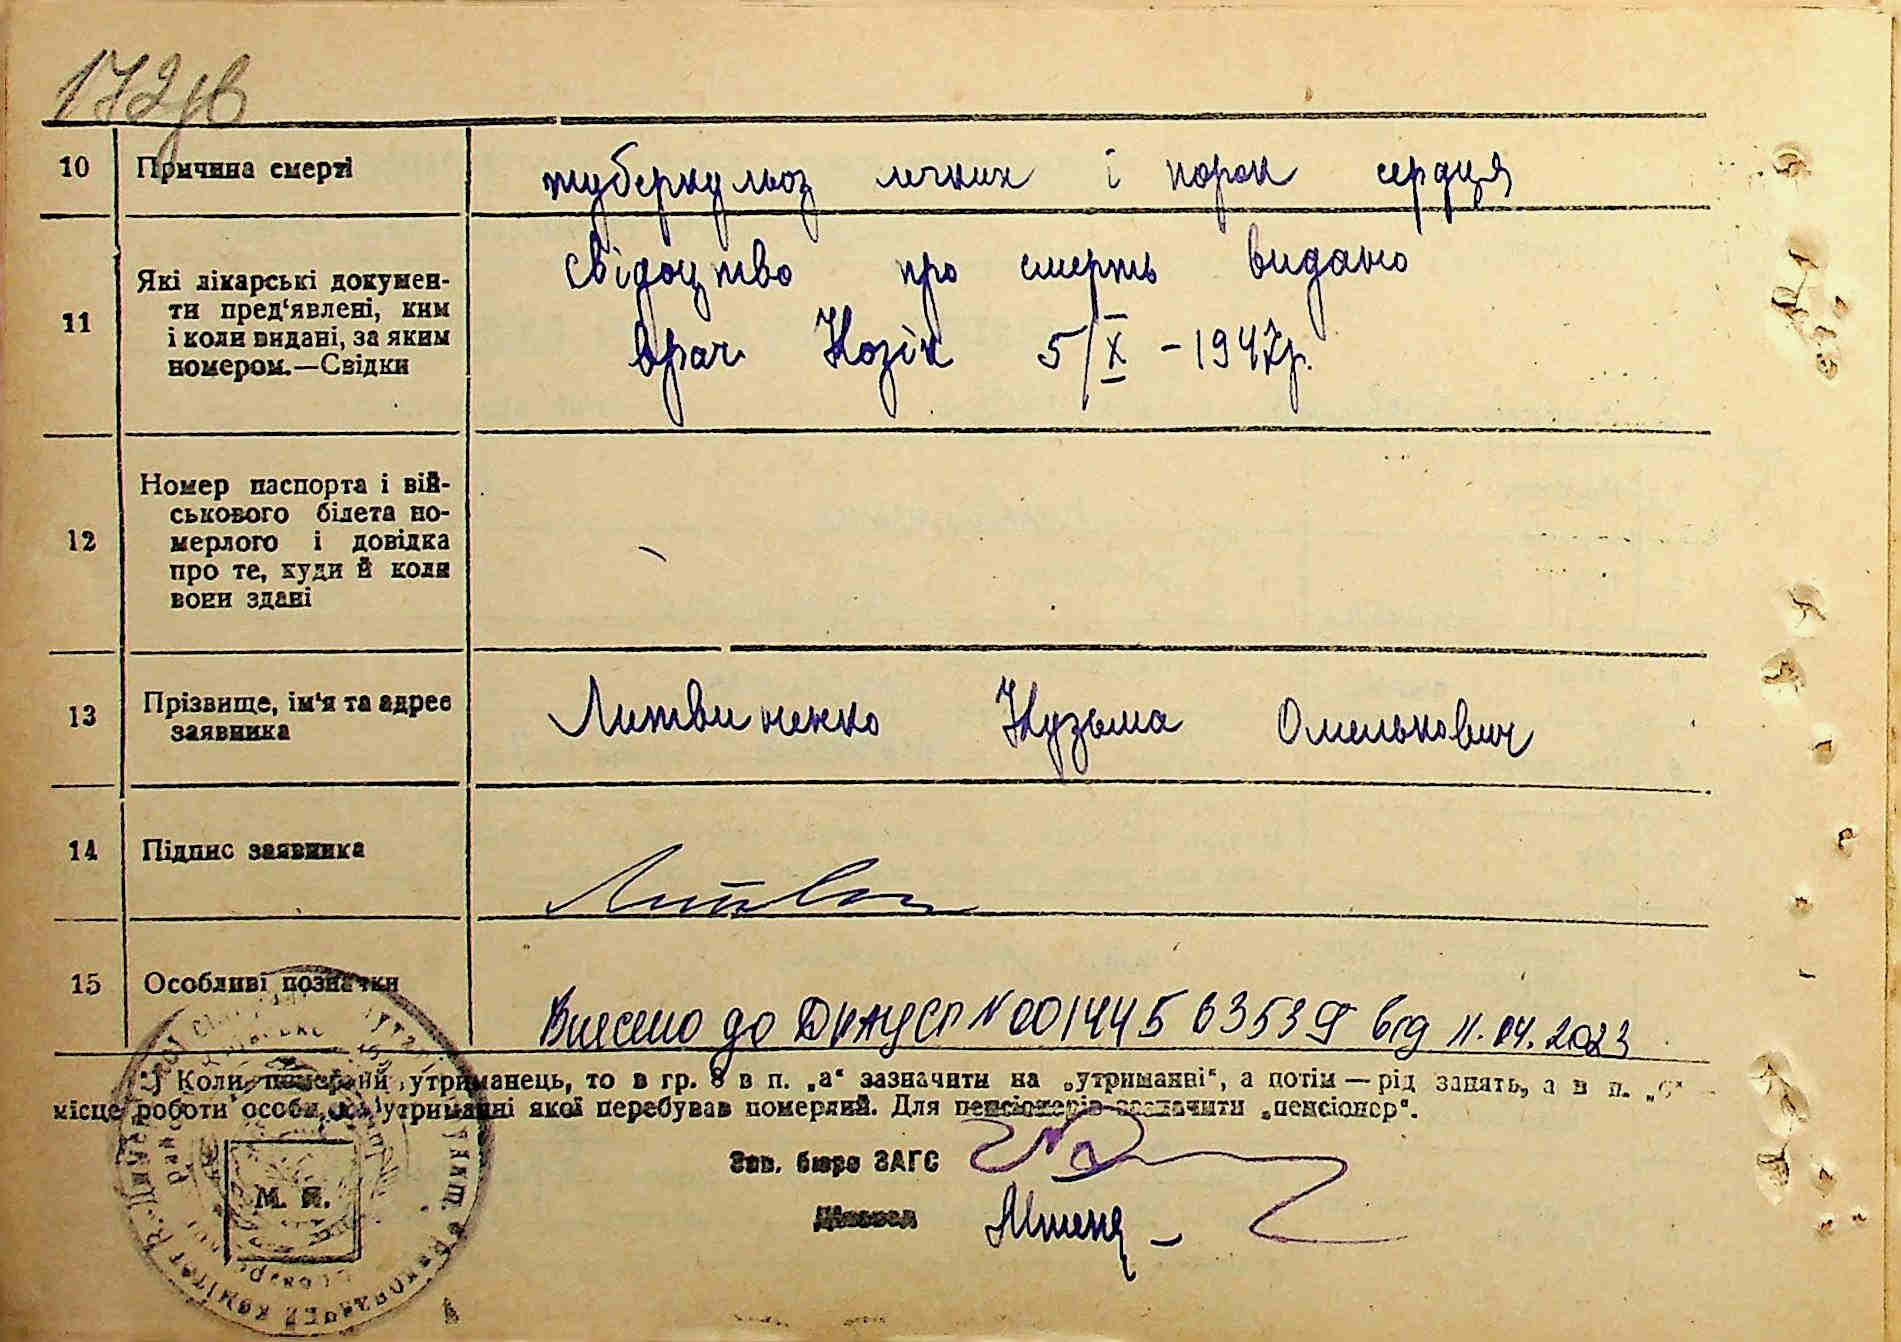 172зв
10 Причина смерті туберкульоз легких і порок сердця
11 Які лікарські докумен-
ти пред‘явлені, ким
і коли видані, за яким
номером.—Свідки
свідоцтво про смерть видано
врач Козік 5/X - 1947р.
12 Номер паспорта і вій-
ськового білета по-
мерлого і довідка
про те, куди й коли
вони здані
13 Прізвище, ім‘я та адрес
заявника
Литвиненко Кузьма Омелькович
14 Підпис заявника
Литвин
15 Особливі позначки
Внесено до ДРАЦСГ N 00144563539 від 11.04.2023
*) Коли померлий утриманець, то в гр. 8 в п. „а“ зазначити на „утриманні“, а потім — рід занять, а в п. „б“
місце роботи особи, на утриманні якої перебував померлий. Для пенсіонерів зазначити „пенсіонер“.
Зав. бюро ЗАГС
Діловод
М. П.